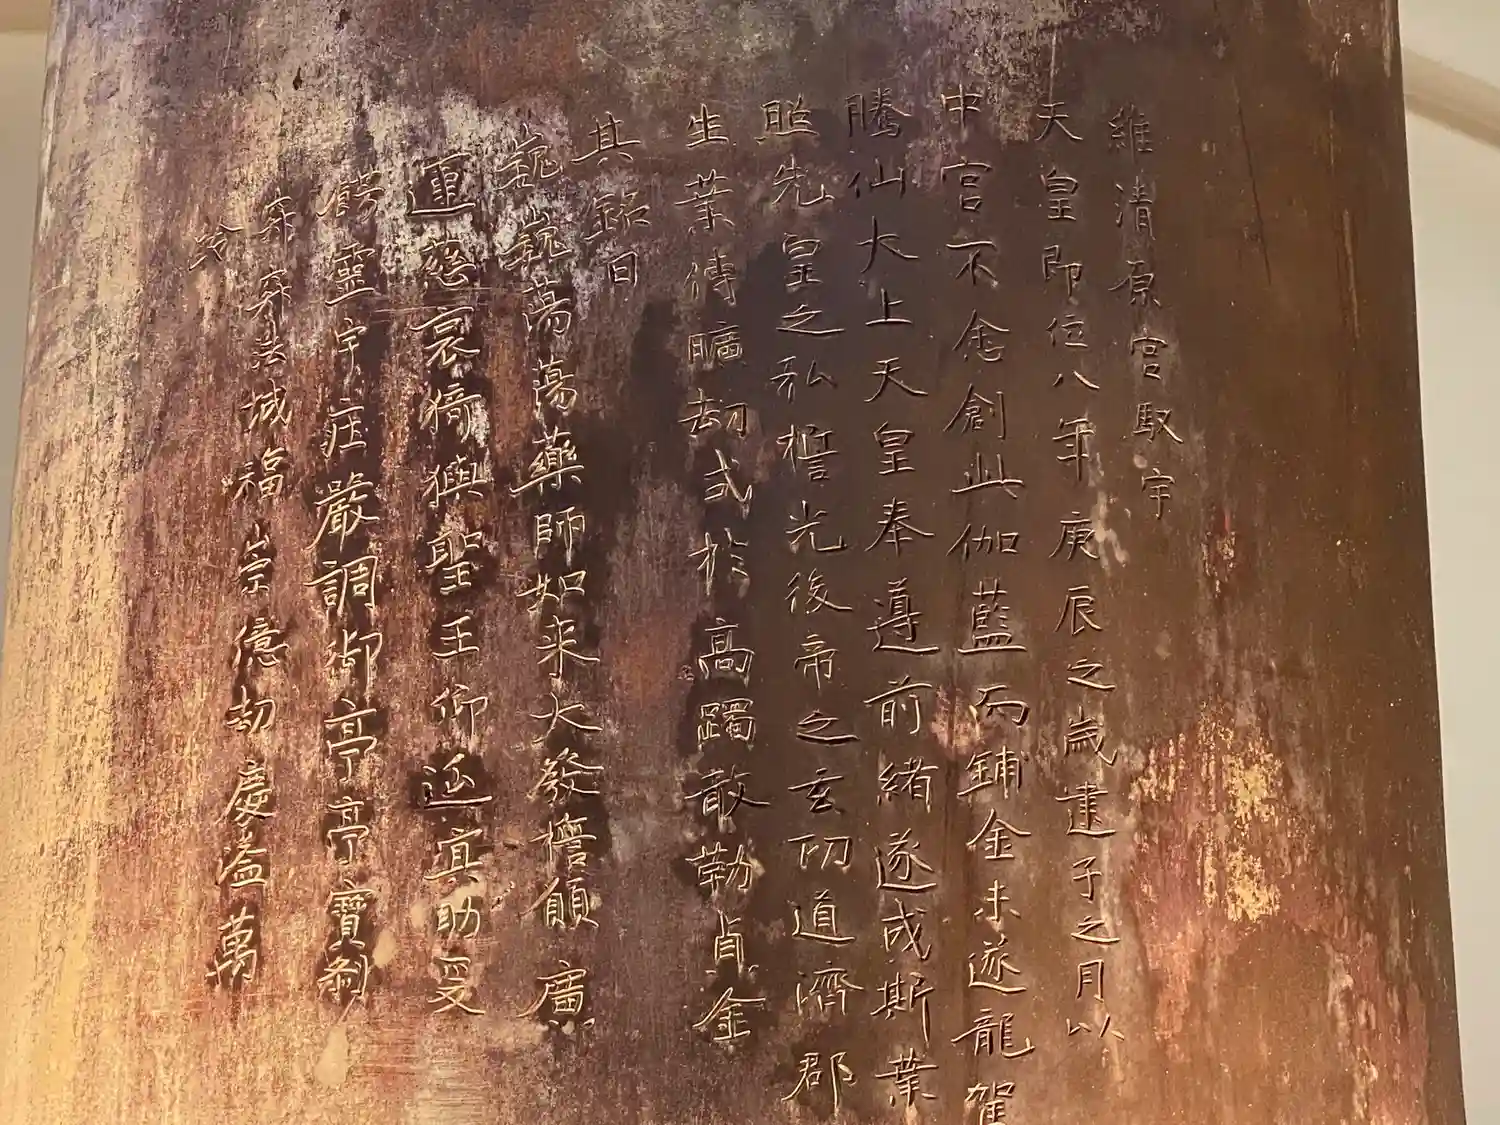 維清原宮馭宇
天皇即位八年庚辰之歳建子之月以
中宮不悆創此伽藍而鋪金未遂龍駕
騰仙大上天皇奉遵前緒遂成斯業
照先皇之弘誓光後帝之玄功道濟郡
生業傳曠劫式於高躅敢勒貞金
其銘曰
巍巍蕩蕩藥師如来大發誓願廣
運慈哀猗與聖王仰延冥助爰
餝靈宇莊嚴調御亭亭寶刹
寂寂法城福崇億劫慶溢萬
齡